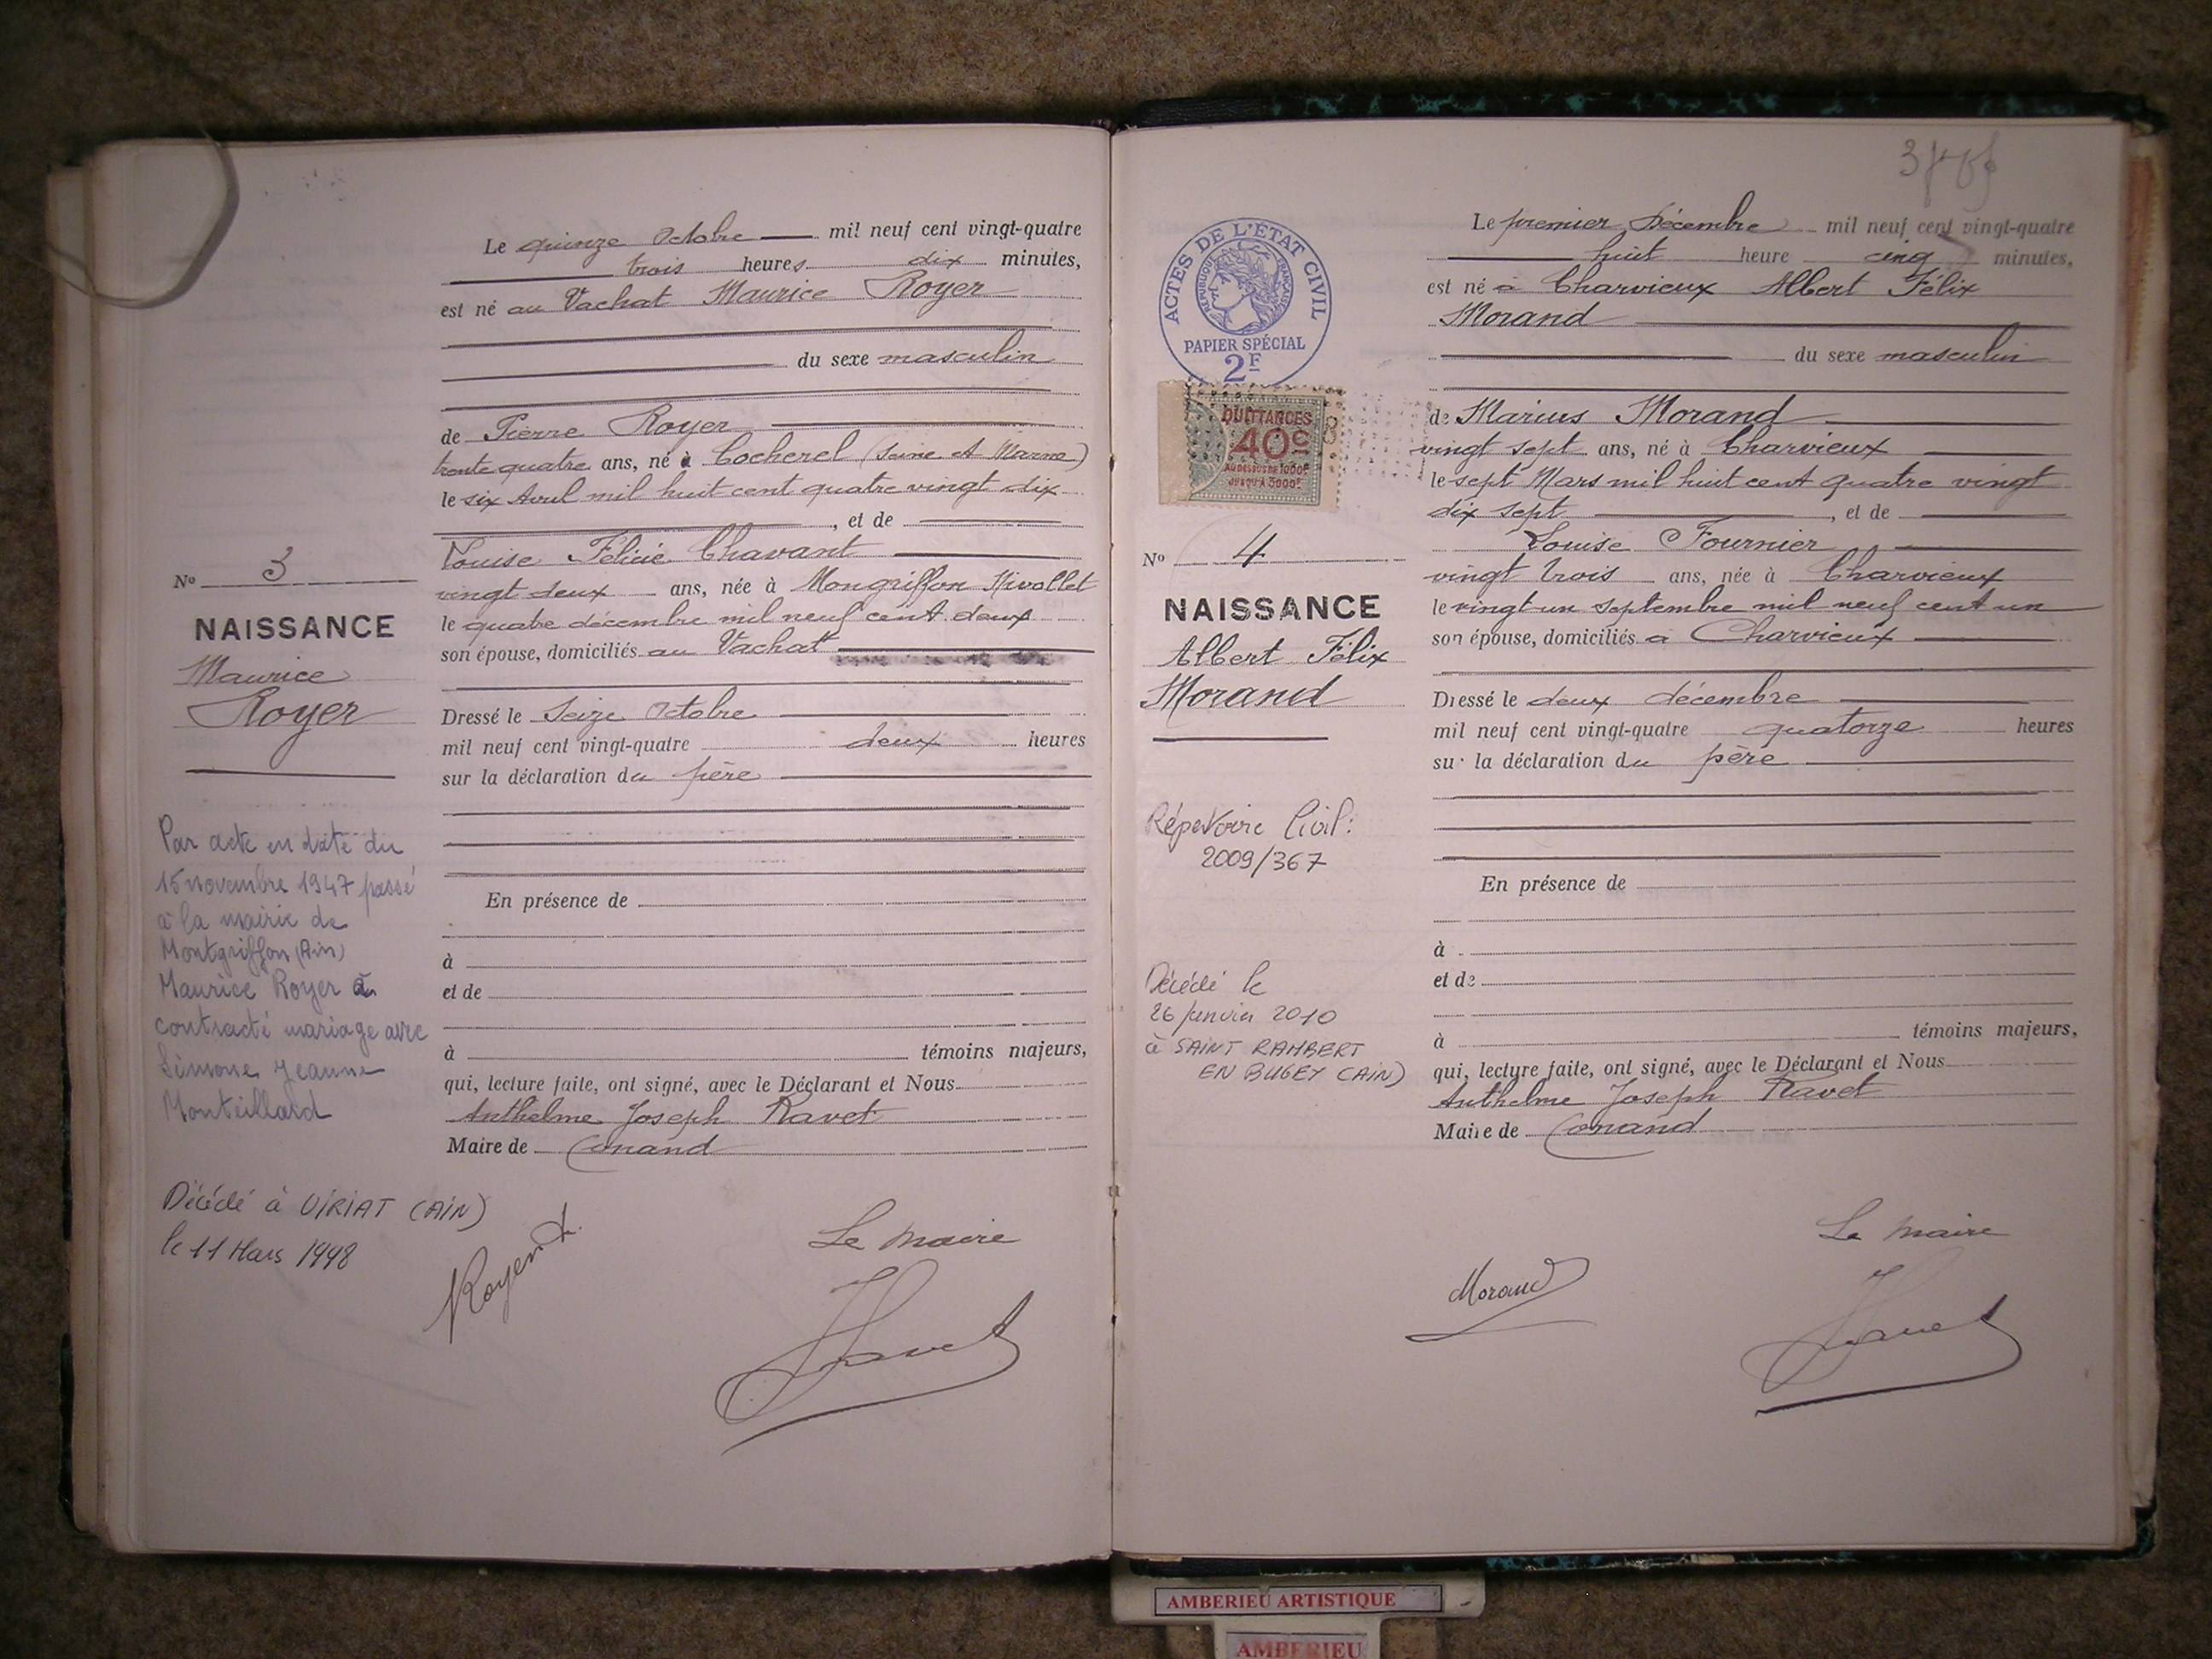 Le quinze Octobre mil neuf cent vingt-quatre
trois heures dix minutes,
est né au Vachat Maurice Royer
du sexe masculin
de Pierre Royer
trente quatre ans, né à Cocherel (Seine et Marne)
le six Avril mil huit cent quatre vingt dix
, et de
Louise Félicie Chavant
vingt deux ans, née à Mongriffon Nivollet
le quatre décembre mil neuf cent deux
son épouse, domiciliés au Vachat
Dressé le Seize Octobre
mil neuf cent vingt-quatre deux heures
sur la déclaration du père
En présence de
à
et de
à témoins majeurs,
qui, lecture faite, ont signé, avec le Déclarant et Nous
Anthelme Joseph Ravet
Maire de Conand
Le maire
Royer
Ravet
No 3
NAISSANCE
Maurice
Royer
Par acte en date du
15 novembre 1947 passé
à la mairie de
Montgriffon (Ain)
Maurice Royer a
contracté mariage avec
Simone Jeanne
Monteillard
Décédé à VIRIAT (AIN)
le 11 Mars 1998
Le premier Décembre mil neuf cent vingt-quatre
huit heure cinq minutes,
est né à Charvieux Albert Félix
Morand
du sexe masculin
de Marius Morand
vingt sept ans, né à Charvieux
le sept Mars mil huit cent quatre vingt
dix sept , et de
Louise Fournier
vingt trois ans, née à Charvieux
le vingt-un septembre mil neuf cent un
son épouse, domiciliés à Charvieux
Dressé le deux décembre
mil neuf cent vingt-quatre quatorze heures
sur la déclaration du père
En présence de
à
et de
à témoins majeurs,
qui, lecture faite, ont signé, avec le Déclarant et Nous
Anthelme Joseph Ravet
Maire de Conand
Le maire
Morand
Ravet
ACTES DE L'ÉTAT CIVIL
RÉPUBLIQUE FRANÇAISE
PAPIER SPÉCIAL
2F
QUITTANCES
40c
AU DESSUS DE 1000F
JUSQU'À 3000F
No 4
NAISSANCE
Albert Félix
Morand
Répertoire Civil:
2009/367
Décédé le
26 janvier 2010
à SAINT RAMBERT
EN BUGEY (AIN)
AMBERIEU ARTISTIQUE
AMBERIEU